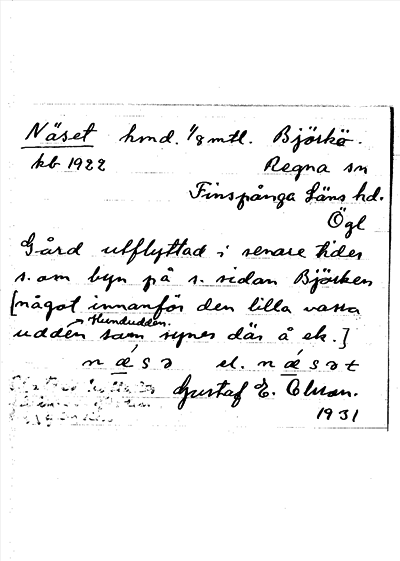 Näset hmd. 1/8 mtl. Björkö.
kb 1922 Regna sn
Finspånga läns hd.
Ögl
Gård utflyttad i senare tider
s. om byn på s. sidan Björken
[något innanför den lilla vassa
udden Hundudden som synes där å ek.]
næ´sə el. næ´sət
Gustaf E. Olsson.
1931